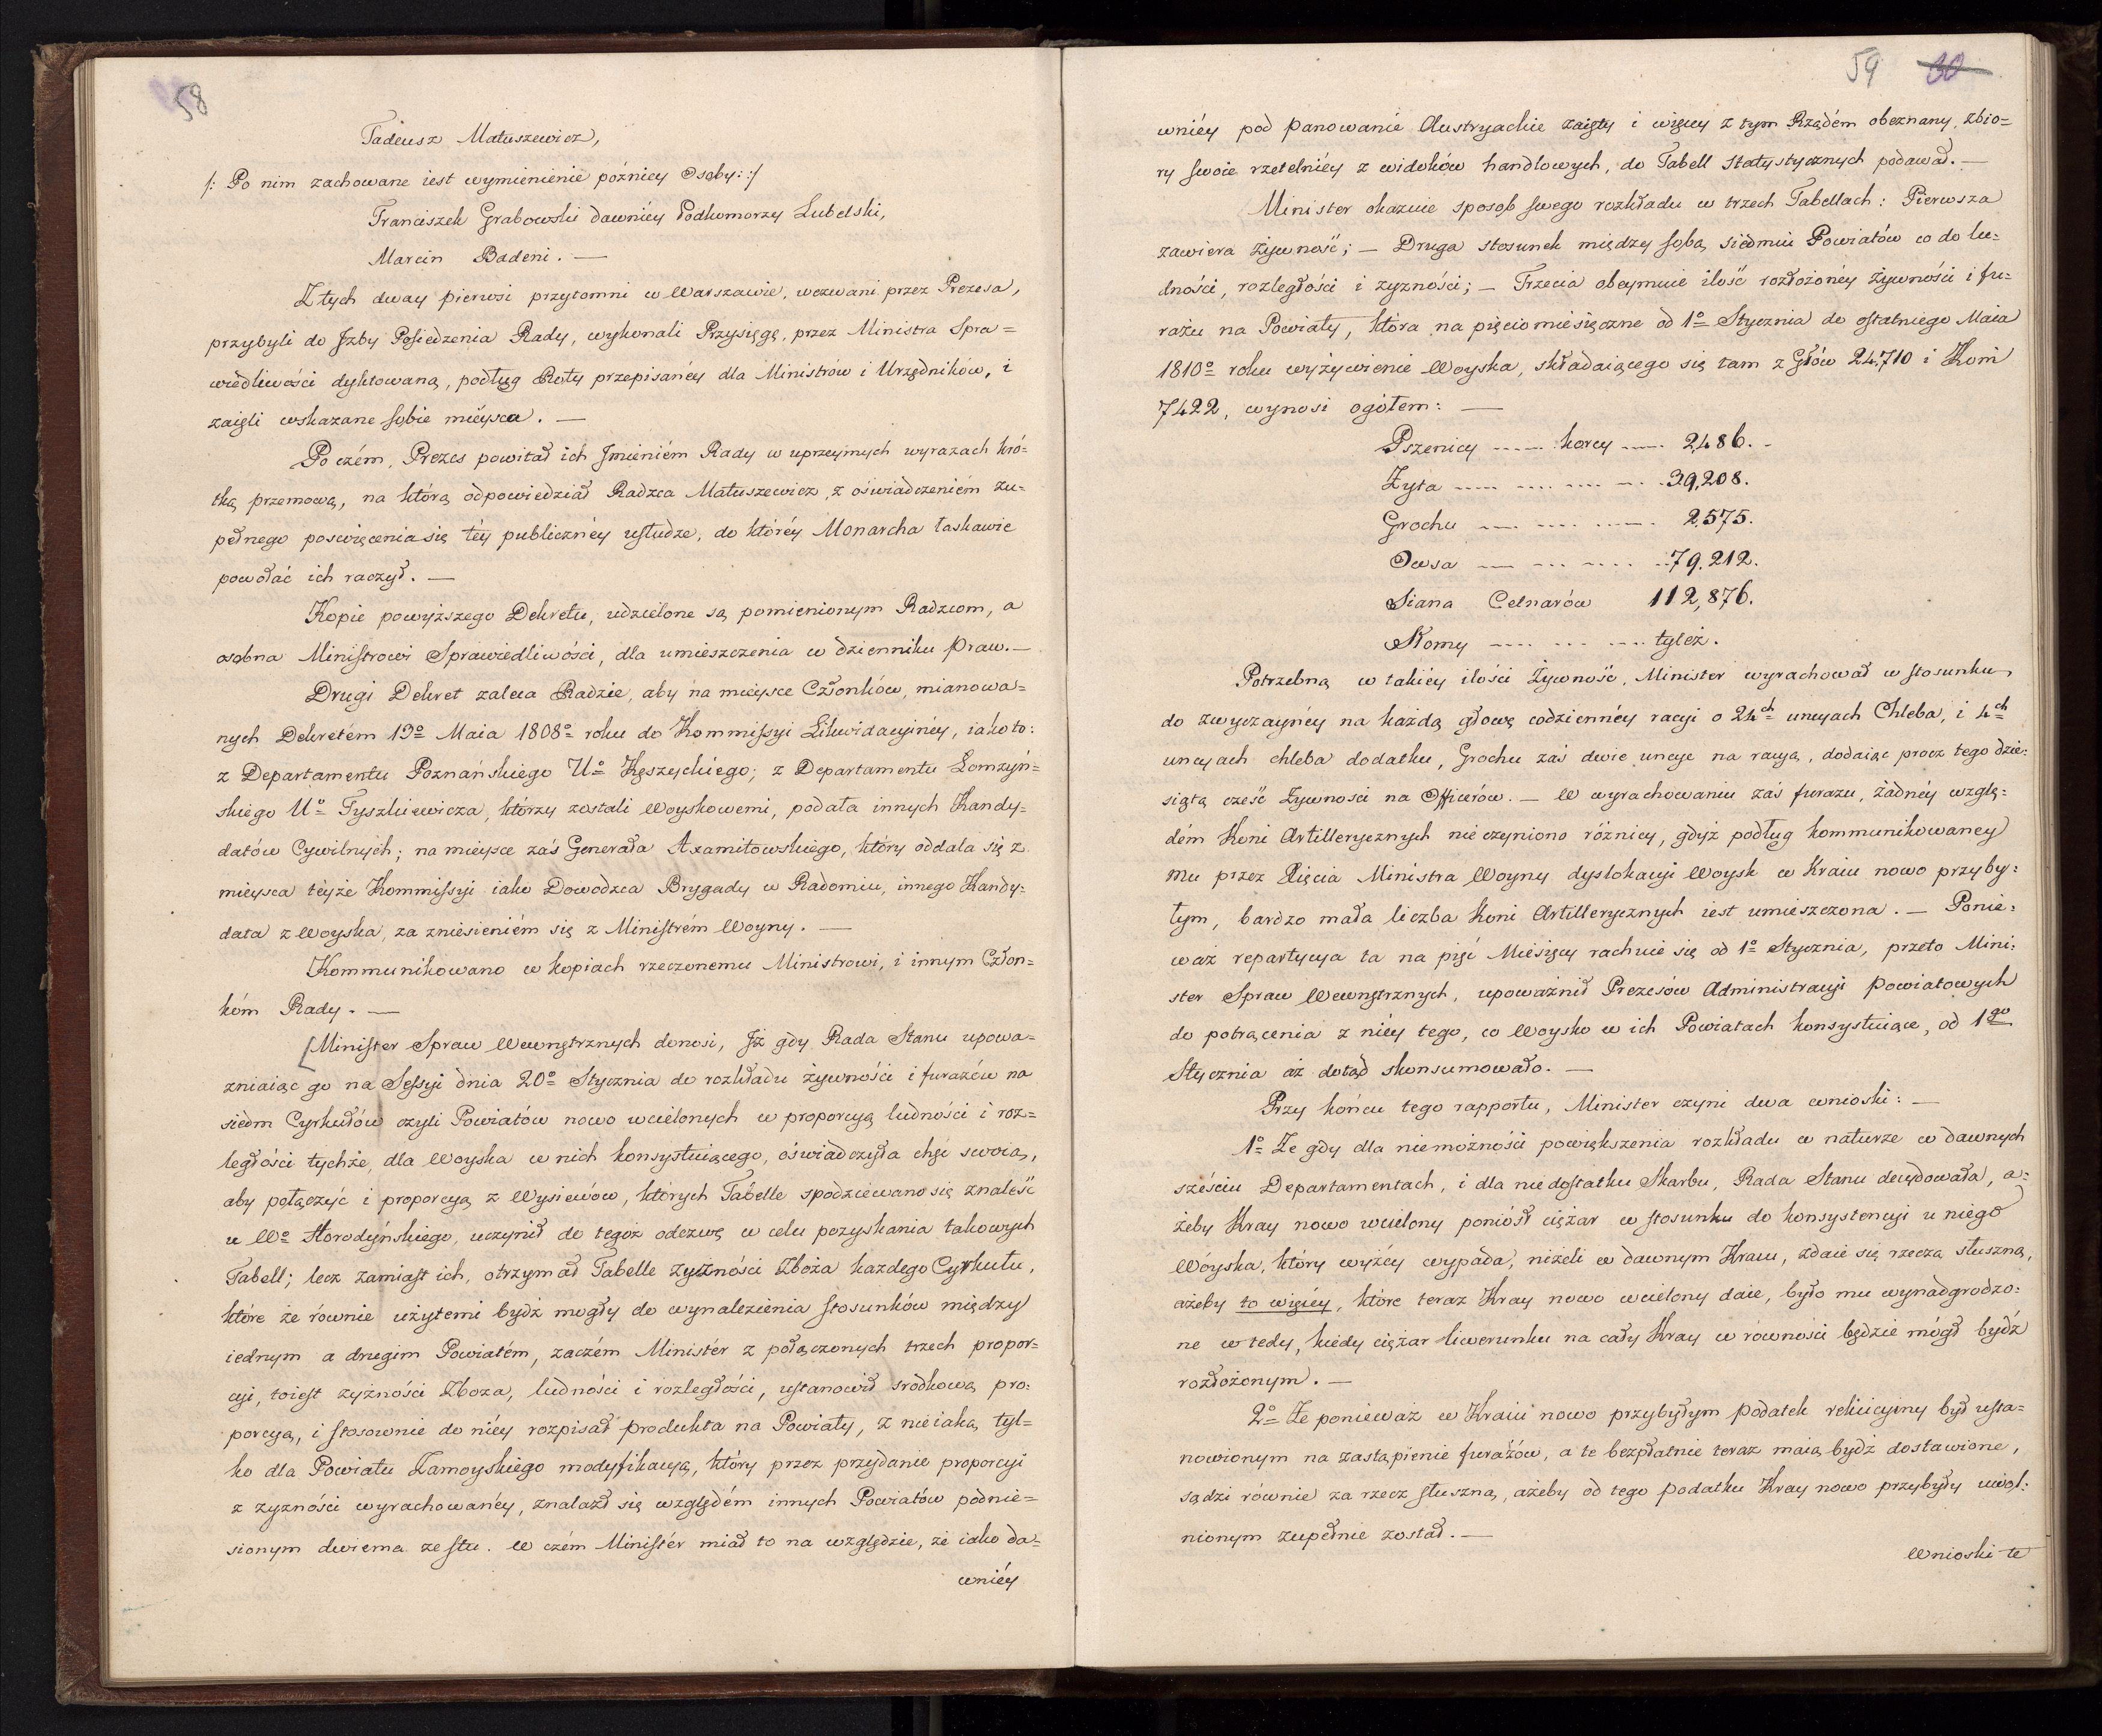 58
Tadeusz Matuszewicz,
/: Po nim zachowane iest wymienienie późniey Osoby: :/
Franciszek Grabowski dawniéy Podkomorzy Lubelski,
Marcin Badeni. —
Z tych dway pierwsi przytomni w Warszawie, wezwani przez Prezesa,
przybyli do Jzby Posiedzenia Rady, wykonali Przysięgę, przez Ministra Spra=
wiedliwości dyktowaną, podług Roty przepisanéy dla Ministrów i Urzędników, i
zaięli wskazane sobie mieysca. —
Po czém, Prezes powitał ich Jmieniém Rady w uprzeymych wyrazach kró=
tką przemową, na którą odpowiedział Radzca Matuszewicz, z oświadczeniém zu=
pełnego poswięcenia się téy publicznéy usłudze, do któréy Monarcha łaskawie
powołać ich raczył. —
Kopie powyższego Dekretu, udzielone są pomienionym Radzcom, a
osobna Ministrowi Sprawiedliwości, dla umieszczenia w dzienniku Praw. —
Drugi Dekret zaleca Radzie, aby na mieysce Członków, mianowa=
nych Dekretém 19º Maia 1808º roku do Kommissyi Likwidacyinéy, iako to:
z Departamentu Poznańskiego Uº Kęszyckiego; z Departamentu Łomzyń=
skiego Uº Tyszkiewicza, którzy zostali Woyskowemi, podała innych Kandy=
datów Cywilnych; na mieysce zaś Generała Axamitowskiego, który oddala się z
mieysca téyże Kommissyi iako Dowodzca Brygady w Radomiu, innego Kandy=
data z Woyska, za zniesieniém się z Ministrém Woyny. —
Kommunikowano w kopiach rzeczonemu Ministrowi, i innym Człon=
kóm Rady. —
[Minister Spraw Wewnętrznych donosi, Jż gdy Rada Stanu upowa=
zniaiąc go na Sessyi dnia 20º Stycznia do rozkładu żywności i furażów na
siedm Cyrkułów czyli Powiatów nowo wcielonych w proporcyą ludności i roz=
ległości tychże, dla Woyska w nich konsystuiącego, oświadczyła chęć swoią,
aby połączyć i proporcyą z Wysiewów, których Tabelle spodziewano się znaleść
u Wº Horodyńskiego, uczynił do tegoż odezwę w celu pozyskania takowych
Tabell; lecz zamiast ich, otrzymał Tabelle żyzności Zboża kazdego Cyrkułu,
które że równie użytemi bydź mogły do wynalezienia stosunków między
iednym a drugim Powiatém, zaczém Ministér z połączonych trzech propor=
cyi, toiest zyżności Zboza, ludności i rozległości, ustanowił srodkową pro=
porcyą, i stosownie do niéy rozpisał produkta na Powiaty, z nieiaką tyl=
ko dla Powiatu Zamoyskiego modyfikacyą, który przez przydanie proporcyi
z zyzności wyrachowanéy, znalazł się względém innych Powiatów podnie=
sionym dwiema ze stu. W czém Ministér miał to na względzie, że iako da=
wniéy
59 60
wniéy pod Panowanie Austryackie zaięty i więcey z tym Rządém obeznany, zbio=
ry swoie rzetelniéy z widoków handlowych, do Tabell statystycznych podawał. —
Minister okazuie sposob swego rozkładu w trzech Tabellach: Pierwsza
zawiera Żywność; — Druga stosunek między sobą siedmiu Powiatów co do lu=
dności, rozległości i zyzności; — Trzecia obeymuie ilość rozłożonéy Żywności i fu=
rażu na Powiaty, która na pięciomiesięczne od 1º Stycznia do ostatniego Maia
1810º roku wyżywienie Woyska, składaiącego się tam z Głów 24,710 i Koni
7422, wynosi ogółem: —
Pszenicy ...... korcy ...... 2,486. -
Żyta ...... .... .... ... 39,208.
Grochu .... .... ..... 2,575.
Owsa .... ... .... ... 79,212.
Siana Cetnarów 112,876.
Słomy .... ... ... .... tyleż.
Potrzebną w takiey ilości Żywność, Minister wyrachował w stosunku
do zwyczaynéy na każdą głowę codziennéy racyi o 24ch uncyach Chleba, i 4ch
uncyach chleba dodatku, Grochu zaś dwie uncye na racyą, dodaiąc procz tego dzie=
siątą cześć Żywnosci na Officerów. — W wyrachowaniu zaś furazu, żadney wzglę=
dém Koni Artillerycznych nie czyniono różnicy, gdyż podług kommunikowaney
mu przez Xięcia Ministra Woyny dyslokacyi Woysk w Kraiu nowo przyby=
łym, bardzo mała liczba Koni Artillerycznych iest umieszczona. — Ponie=
waż repartycya ta na pięć Miesięcy rachuie się od 1º Stycznia, przeto Mini=
ster Spraw Wewnętrznych, upoważnił Prezesów Administracyi Powiatowych
do potrącenia z niéy tego, co Woysko w ich Powiatach konsystuiące, od 1go
Stycznia aż dotąd skonsumowało. —
Przy końcu tego rapportu, Minister czyni dwa wnioski: —
1º Że gdy dla niemożności powiększenia rozkładu w naturze w dawnych
sześciu Departamentach, i dla niedostatku Skarbu, Rada Stanu decydowała, a=
żeby Kray nowo wcielony poniósł ciężar w stosunku do konsystencyi u niego
Woyska, który wyżéy wypada, niżeli w dawnym Kraiu, zdaie się rzeczą słuszną,
ażeby to więcéy, które teraz Kray nowo wcielony daie, było mu wynadgrodzo=
ne w tedy, kiedy ciężar liwerunku na cały Kray w równości będzie mógł bydź
rozłożonym. —
2º Że ponieważ w Kraiu nowo przybyłym podatek relucyjny był usta=
nowionym na zastąpienie furażów, a te bezpłatnie teraz maią bydź dostawione,
sądzi równie za rzecz słuszną, ażeby od tego podatku Kray nowo przybyły uwol=
nionym zupełnie został. —
Wnioski te